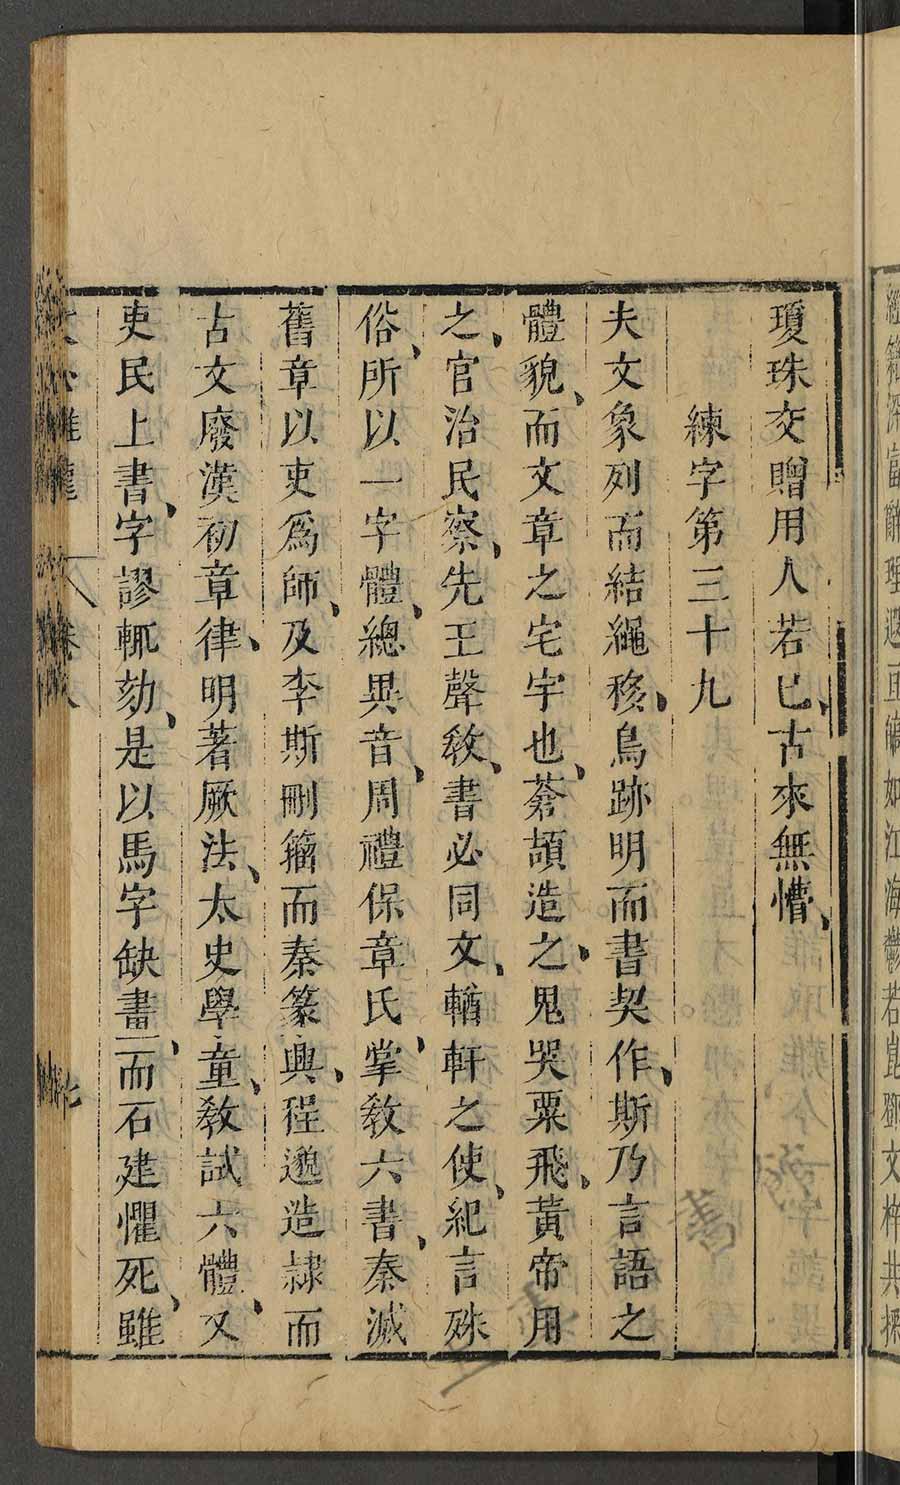 瓊珠交贈用人若已古來無懵
練字第三十九
夫文象列而結繩移鳥跡明而書契作斯乃言語之
體貌而文章之宅宇也蒼頡造之鬼哭粟飛黃帝用
之官治民察先王聲教書必同文輶軒之使紀言殊
俗所以一字體總異音周禮保章氏掌教六書秦滅
舊章以吏爲師及李斯刪籀而秦篆興程邈造隸而
古文廢漢初章律明著厥法太史學童教試六體又
吏民上書字謬輒劾是以馬字缺畫而石建懼死雖